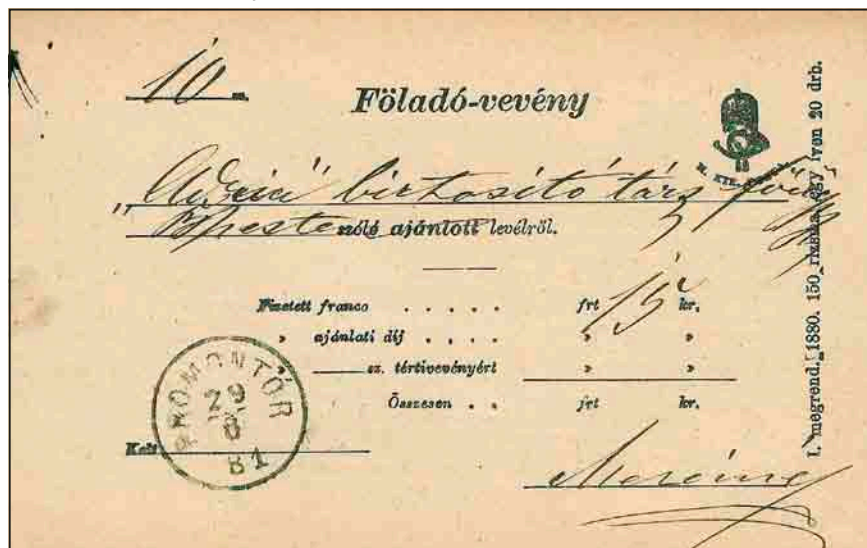 10 sz.
Föladó-vevény
"Adria" biztositó társ
Bpesten szóló ajánlott levélről.
Fizetett franco . . . . . frt 15 kr.
» ajánlati díj . . . . » »
sz. tértivevényért » »
Összesen . . frt kr.
Kelt
PROMONTOR
29
6
81
1. megrend. 1880. 150 rizsma, egy iven 20 drb.